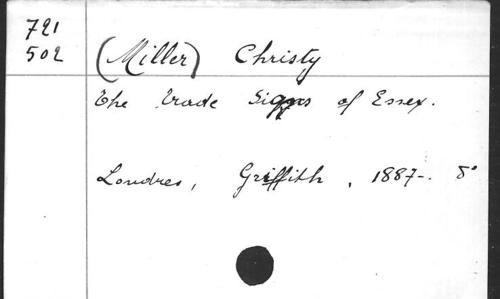 721
502
(Miller) Christy
The Trade Signs of Essex.
Londres, Griffith, 1887-. 8°